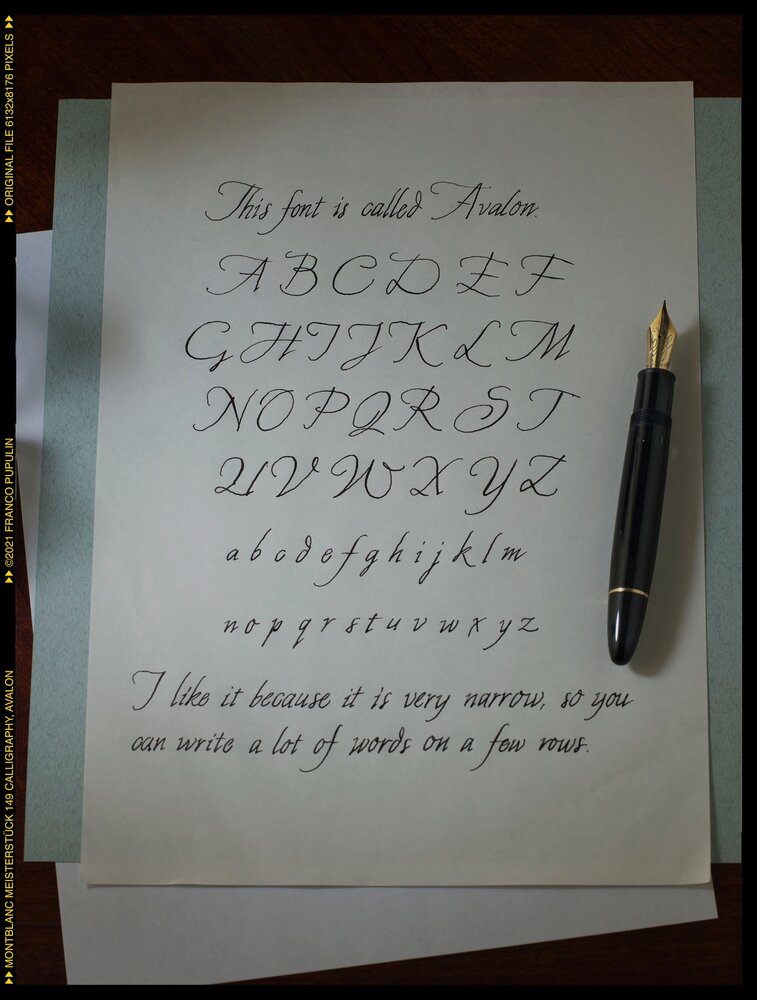 This font is called Avalon.
A B C D E F
G H I J K L M
N O P Q R S T
U V W X Y Z
a b c d e f g h i j k l m
n o p q r s t u v w x y z
I like it because it is very narrow, so you
can write a lot of words on a few rows.
▶▶ MONTBLANC MEISTERSTÜCK 149 CALLIGRAPHY, AVALON ▶▶ ©2021 FRANCO PUPULIN ▶▶ ORIGINAL FILE 6132x8176 PIXELS ▶▶